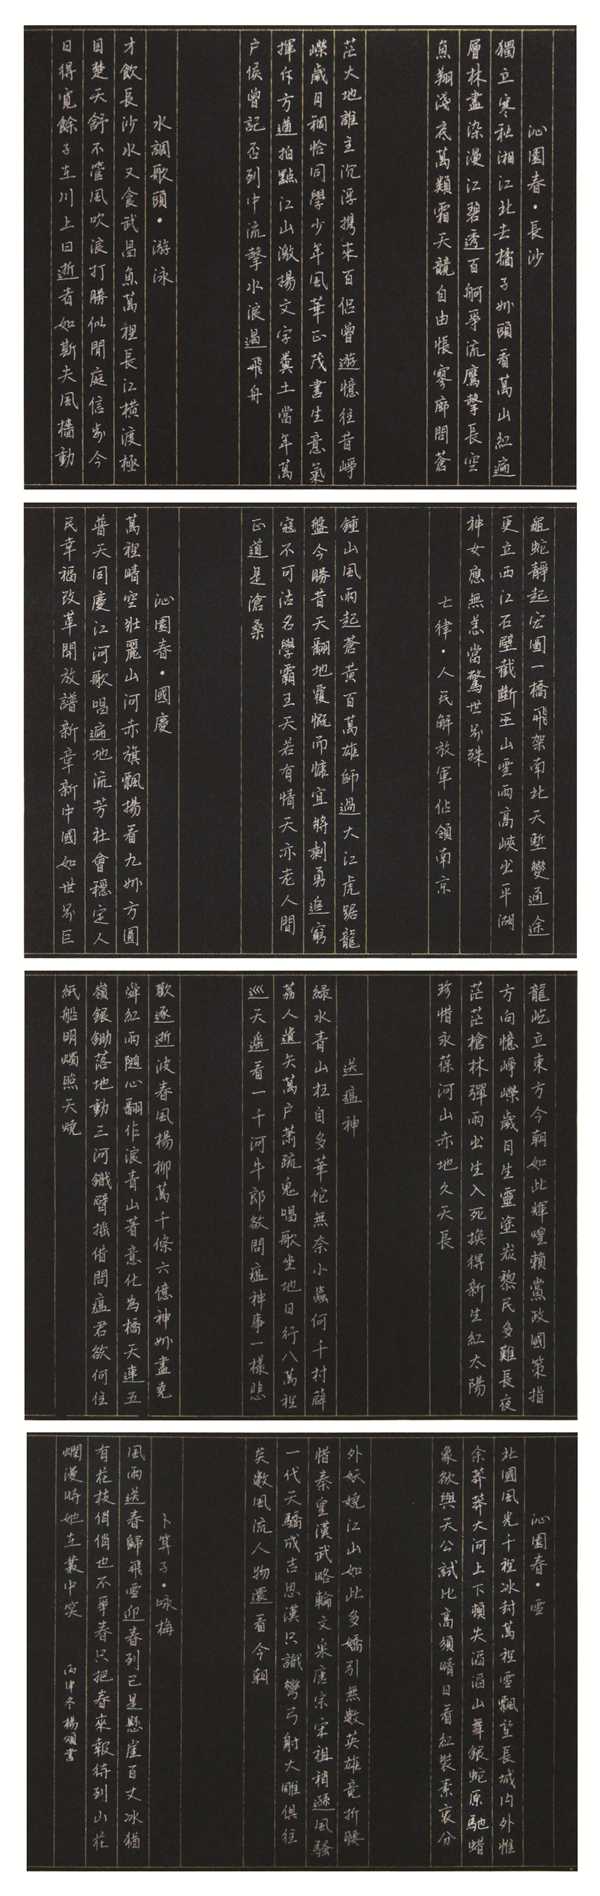 沁園春·長沙
獨立寒秋湘江北去橘子州頭看萬山紅遍
層林盡染漫江碧透百舸爭流鷹擊長空
魚翔淺底萬類霜天競自由悵寥廓問蒼
茫大地誰主沉浮攜來百侶曾遊憶往昔崢
嶸歲月稠恰同學少年風華正茂書生意氣
揮斥方遒指點江山激揚文字糞土當年萬
户侯曾記否到中流擊水浪遏飛舟
水調歌頭·游泳
才飲長沙水又食武昌魚萬裡長江橫渡極
目楚天舒不管風吹浪打勝似閒庭信步今
日得寬餘子在川上曰逝者如斯夫風檣動
龜蛇靜起宏圖一橋飛架南北天塹變通途
更立西江石壁截斷巫山雲雨高峽出平湖
神女應無恙當驚世界殊
七律·人民解放軍佔領南京
鍾山風雨起蒼黃百萬雄師過大江虎踞龍
盤今勝昔天翻地覆慨而慷宜將剩勇追窮
寇不可沽名學霸王天若有情天亦老人間
正道是滄桑
沁園春·國慶
萬裡晴空壯麗山河赤旗飄揚看九州方圓
普天同慶江河歌唱遍地流芳社會穩定人
民幸福改革開放譜新章新中國如世界巨
龍屹立東方今朝如此輝煌賴黨政國策指
方向憶崢嶸歲月生靈塗炭黎民多難長夜
茫茫槍林彈雨出生入死換得新生紅太陽
珍惜永葆河山赤地久天長
送瘟神
綠水青山枉自多華佗無奈小蟲何千村薜
荔人遺矢萬户蕭疏鬼唱歌坐地日行八萬裡
巡天遙看一千河牛郎欲問瘟神事一樣悲
歡逐逝波春風楊柳萬千條六億神州盡堯
舜紅雨隨心翻作浪青山著意化為橋天連五
嶺銀鋤落地動三河鐵臂搖借問瘟君欲何往
紙船明燭照天燒
沁園春·雪
北國風光千裡冰封萬裡雪飄望長城內外惟
余莽莽大河上下頓失滔滔山舞銀蛇原馳蠟
象欲與天公試比高須晴日看紅裝素裹分
外妖嬈江山如此多嬌引無數英雄竟折腰
惜秦皇漢武略輸文采唐宗宋祖稍遜風騷
一代天驕成吉思漢只識彎弓射大雕俱往
矣數風流人物還看今朝
卜算子·咏梅
風雨送春歸飛雪迎春到已是懸崖百丈冰猶
有花枝俏俏也不爭春只把春來報待到山花
爛漫時她在叢中笑
丙申冬楊頌書